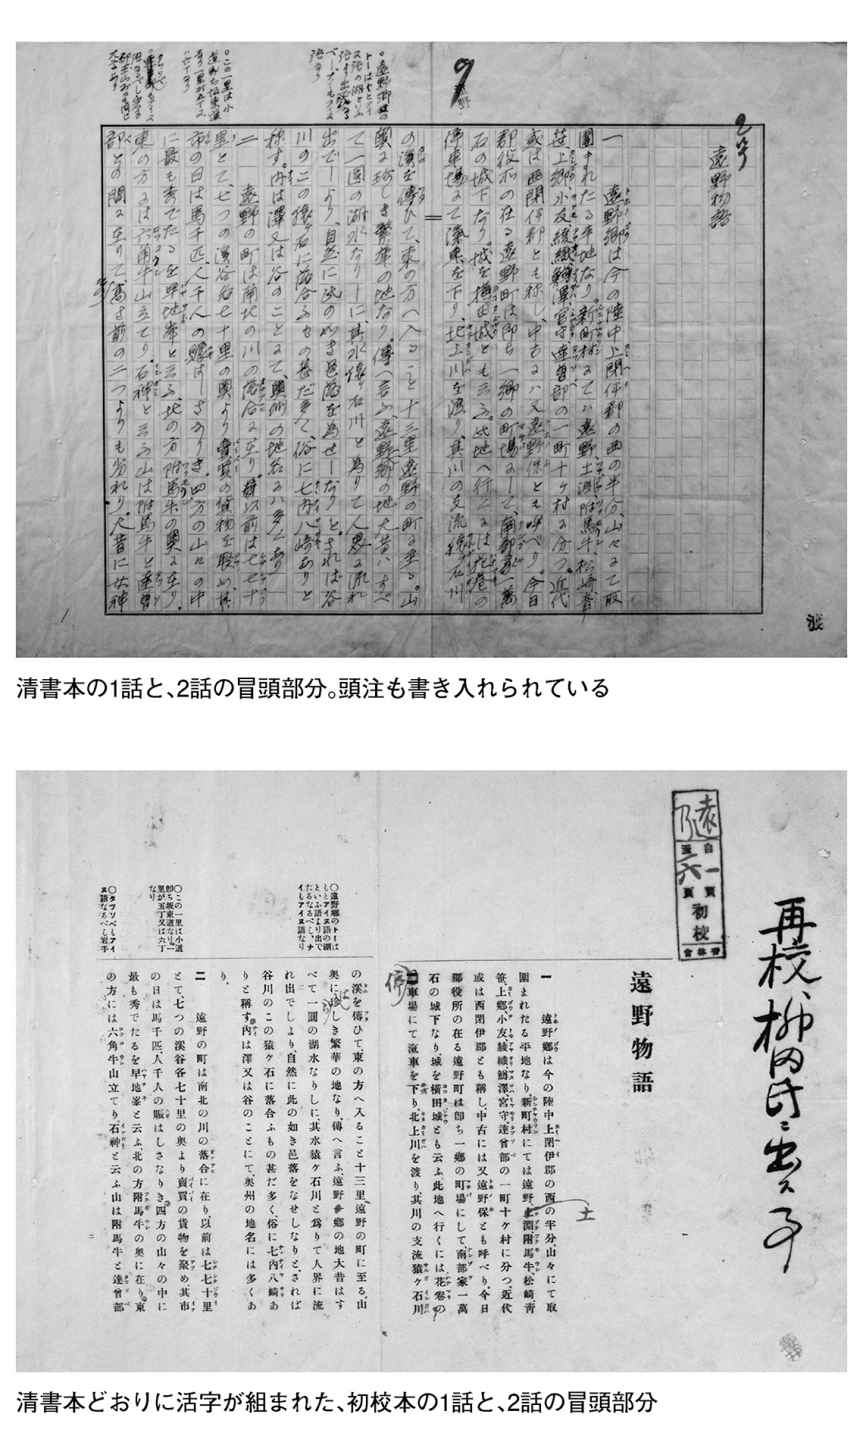 遠野物語
一　遠野郷は今の陸中上閉伊郡の西の半分、山々にて取
圍まれたる平地なり。新町村にては遠野、土淵、附馬牛、松崎、青
笹、上郷、小友、綾織、鱒澤、宮守、達曾部の一町十ヶ村に分つ。近代
或は西閉伊郡とも稱し、中古には又遠野保とも呼べり。今日
郡役所の在る遠野町は即ち一郷の町場にして、南部家一萬
石の城下なり。城を横田城とも云ふ。此地へ行くには花巻の
停車場にて汽車を下り、北上川を渡り、其川の支流猿ヶ石川
の溪を傳ひて、東の方へ入ること十三里、遠野の町に至る。山
奥には珍しき繁華の地なり。傳へ言ふ、遠野郷の地大昔はすべ
て一圓の湖水なりしに、其水猿ヶ石川と爲りて人界に流れ
出でしより、自然に此の如き邑落を為せしなりと。されば谷
川のこの猿ヶ石に落合ふもの甚だ多く、俗に七内八崎ありと
稱す。内は澤又は谷のことにて、奥州の地名には多くあり
二　遠野の町は南北の川の落合に在り。以前は七七十
里とて、七つの溪谷各七十里の奥より賣買の貨物を聚め、其
市の日は馬千匹、人千人の賑はしさなりき。四方の山々の中
に最も秀でたるを早地峯と云ふ、北の方附馬牛の奥に在り。
東の方には六角牛山立てり。石神と云ふ山は附馬牛と達曾
部との間に在りて、其高さ前の二つよりも劣れり。大昔に女神
清書本の1話と、2話の冒頭部分。頭注も書き入れられている
再校、柳田氏ニ出ス事
遠
初校
遠野物語
一　遠野郷は今の陸中上閉伊郡の西の半分、山々にて取
圍まれたる平地なり。新町村にては遠野、土淵、附馬牛、松崎、青
笹、上郷、小友、綾織、鱒澤、宮守、達曾部の一町十ケ村に分つ。近代
或は西閉伊郡とも稱し、中古には又遠野保とも呼べり。今日
郡役所の在る遠野町は即ち一郷の町場にして、南部家一萬
石の城下なり。城を横田城とも云ふ。此地へ行くには花巻の
停車場にて滊車を下り、北上川を渡り、其川の支流猿ケ石川
の溪を傳ひて、東の方へ入ること十三里、遠野の町に至る。山
奥に珍しき繁華の地なり。傳へ言ふ、遠野郷の地大昔はす
べて一圓の湖水なりしに、其水猿ケ石川と爲りて人界に流
れ出でしより、自然に此の如き邑落をなせしなりと。されば
谷川のこの猿ケ石に落合ふもの甚だ多く、俗に七内八崎あ
りと稱す。内は澤又は谷のことにて、奥州の地名には多くあ
り。
二　遠野の町は南北の川の落合に在り。以前は七七十里
とて、七つの溪谷各七十里の奥より賣買の貨物を聚め、其市
の日は馬千匹、人千人の賑はしさなりき。四方の山々の中に
最も秀でたるを早地峯と云ふ、北の方附馬牛の奥に在り。東
の方には六角牛山立てり。石神と云ふ山は附馬牛と達曾部
〇遠野郷のトーは
もとアイヌ語の湖
といふ語より出で
たるなるべし、ナ
イもアイヌ語なり
〇この一里は小道
即ち坂東道なり、一
里が五丁又は六丁
なり
〇タツソベもアイ
ヌ語なるべし岩手
土
清書本どおりに活字が組まれた、初校本の1話と、2話の冒頭部分